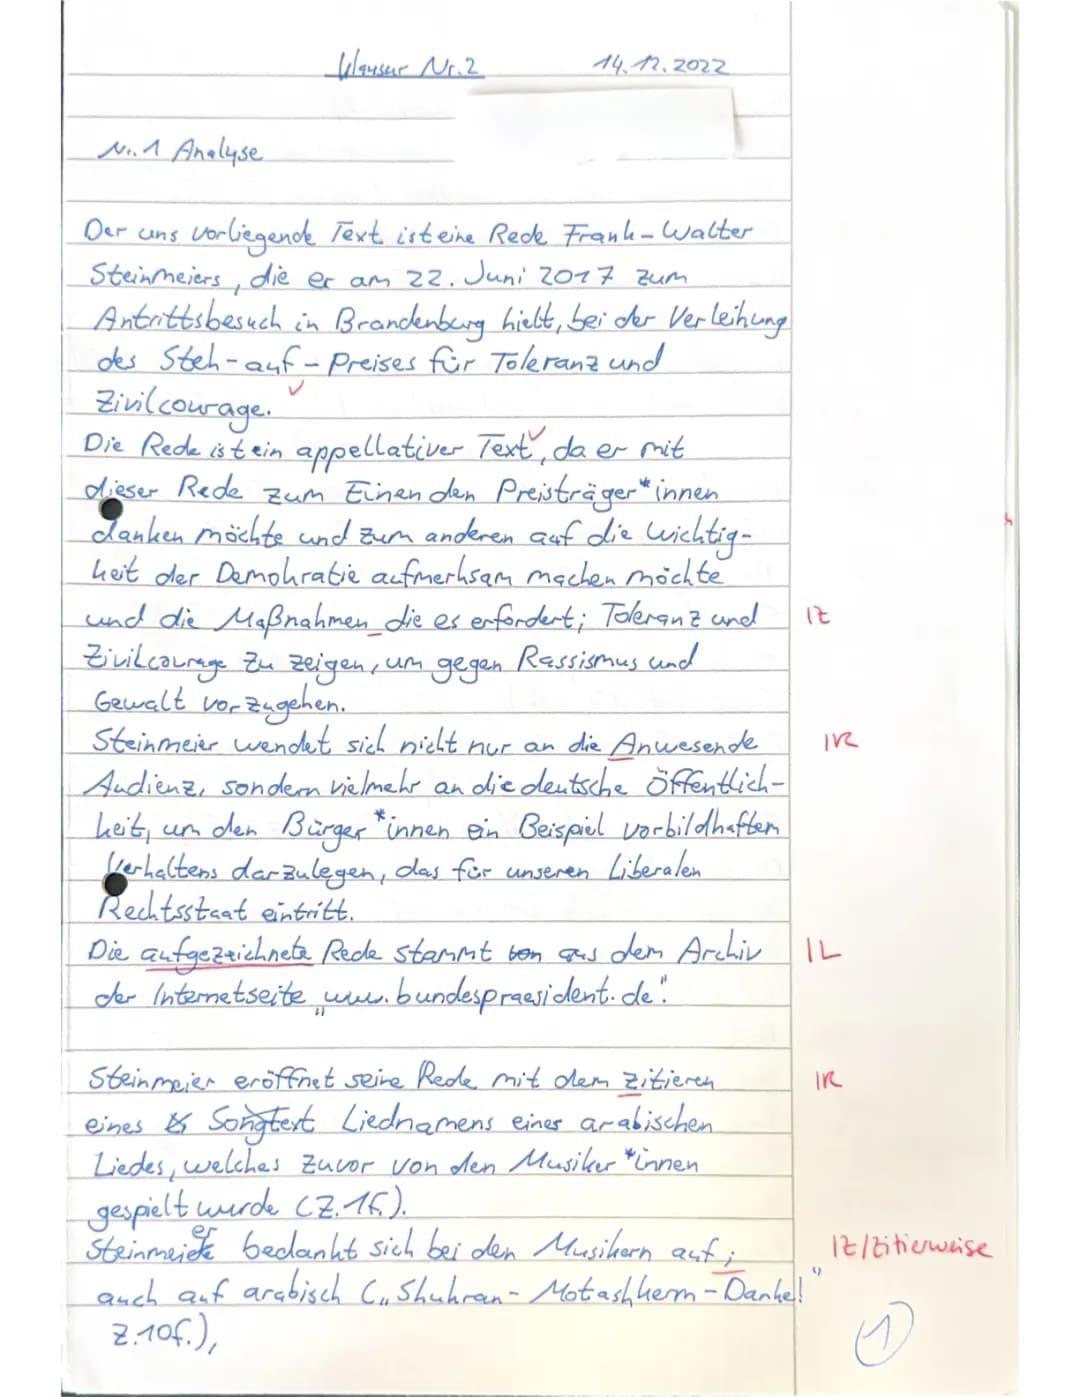 Klausur Nr.2 14.12.2022
Nr. 1 Analyse
Der uns vorliegende Text ist eine Rede Frank-Walter
Steinmeiers, die er am 22. Juni 2017 zum
Antrittsbesuch in Brandenburg hielt, bei der Verleihung
des Steh-auf-Preises für Toleranz und
Zivilcourage.
Die Rede ist ein appellativer Text, da er mit
dieser Rede zum Einen den Preisträger*innen
danken möchte und zum anderen auf die Wichtig-
keit der Demokratie aufmerksam machen möchte
und die Maßnahmen die es erfordert; Toleranz und IZ
Zivilcourage zu zeigen, um gegen Rassismus und
Gewalt vorzugehen.
Steinmeier wendet sich nicht nur an die Anwesende IR
Audienz, sondern vielmehr an die deutsche Öffentlich-
keit, um den Bürger*innen ein Beispiel vorbildhaften
Verhaltens darzulegen, das für unseren Liberalen
Rechtsstaat eintritt.
Die aufgezeichnete Rede stammt von aus dem Archiv IL
der Internetseite „www.bundespraesident.de".
Steinmeier eröffnet seine Rede mit dem zitieren IR
eines Songtext Liednamens eines arabischen
Liedes, welches zuvor von den Musiker*innen
gespielt wurde (Z.1f.).
Steinmeier bedankt sich bei den Musikern auf; IZ/Zitierweise
auch auf arabisch („Shukran-Motashkerm-Danke!"
Z.10f.),
1